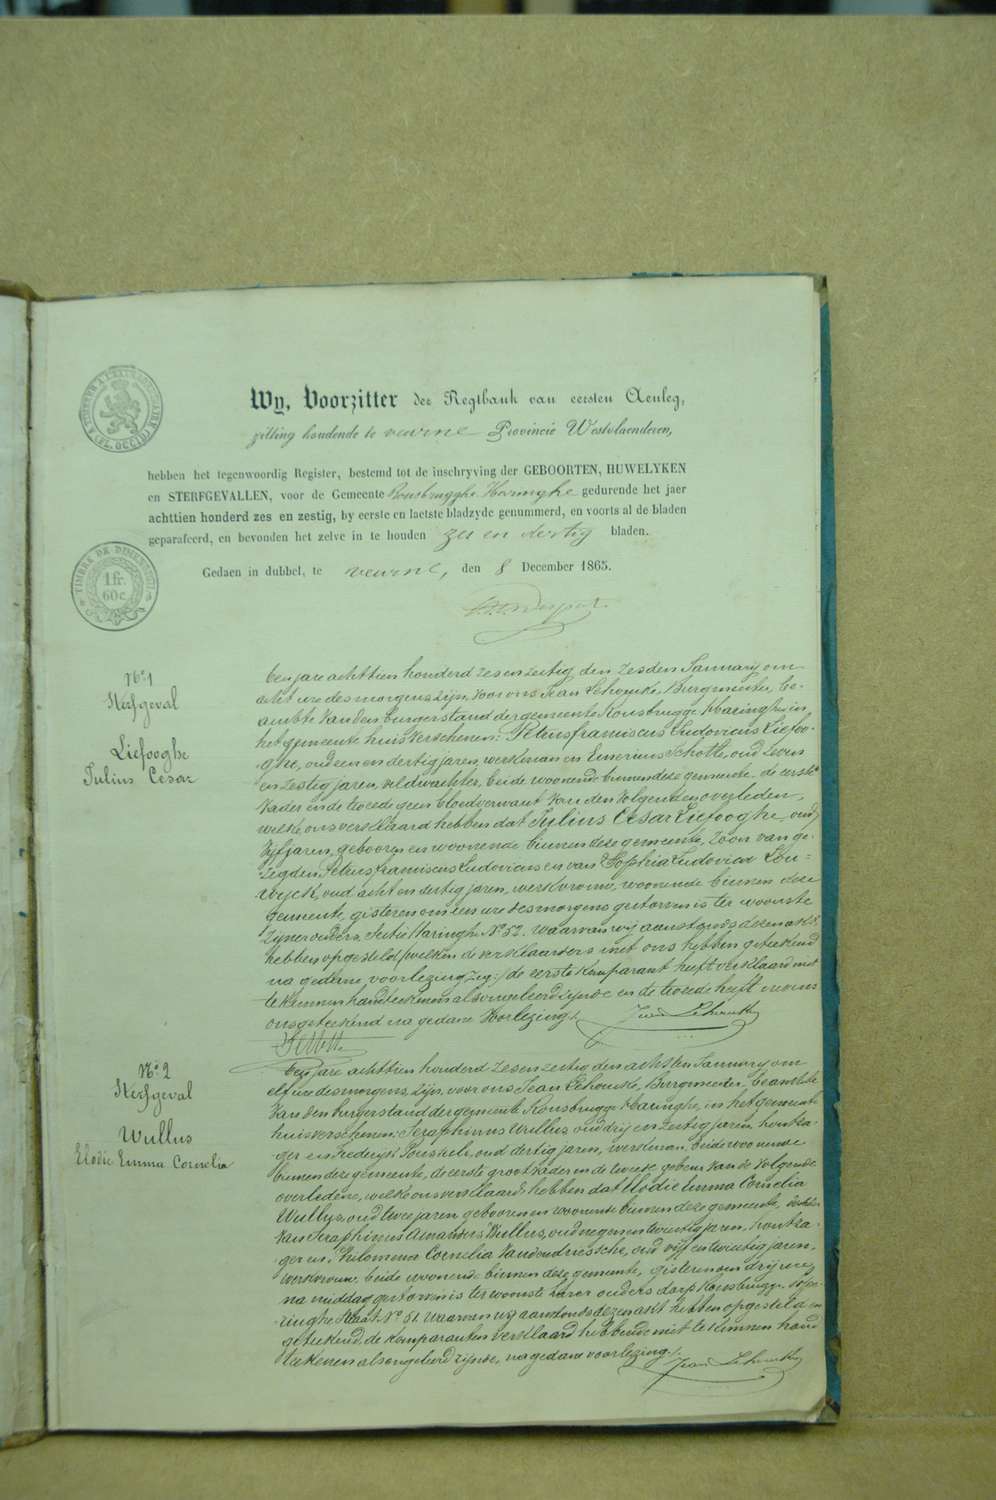 Wy, Voorzitter der Regtbank van eersten Aenleg,
zitting houdende te veurne Provincie Westvlaenderen,
hebben het tegenwoordig Register, bestemd tot de inschryving der GEBOORTEN, HUWELYKEN
en STERFGEVALLEN, voor de Gemeente Rousbrugghe Haringhe gedurende het jaer
achttien honderd zes en zestig, by eerste en laetste bladzyde genummerd, en voorts al de bladen
geparafeerd, en bevonden het zelve in te houden zes en dertig bladen.
TIMBRE DE DIMENSION
1 fr.
60 c.
Gedaen in dubbel, te veurne, den 8 December 1865.
N.o 1
Sterfgeval
Liefooghe
Julius Cesar
den jare achttien honderd zesenzestig den zesden January om
acht ure des morgens zijn voor ons Jean Lehoucke, Burgmeester, be-
ambte van den burgerstand der gemeente Rousbrugge Haringhe in
het gemeente huis verschenen: Petrus franciscus Ludovicus Liefoo-
ghe, oud een en dertig jaren, werkman en Emerius Schotte, oud zeven
en zestig jaren, veldwachter, beide woonende binnen deze gemeente, de eerste
vader en de tweede geen bloedverwant van den volgenden overleden,
welke ons verklaard hebben dat Julius Cesar Liefooghe, oud
vijf jaren, geboren en woonende binnen deze gemeente, zoon van ge-
zegden Petrus franciscus Ludovicus en van Sophia Ludovica Lou-
wyck, oud acht en dertig jaren, werkvrouw, woonende binnen deze
gemeente, gisteren om een ure des morgens gestorven is ter woonste
zijner ouders, Sectie Haringhe N.o 52. waarvan wij aanstonds dezen akt
hebben opgesteld welken de verklaarders met ons hebben geteekend
na gedane voorlezing zeg: de eerste komparant heeft verklaard niet
te kunnen handteekenen als ongeleerd zijnde en de tweede heeft nevens
ons geteekend na gedane voorlezing.
Jean Lehoucke
N.o 2
Sterfgeval
Wullus
Elodie Emma Cornelia
den jare achttien honderd zesenzestig den achtsten January om
elf ure des morgens, zijn voor ons Jean Lehoucke, Burgmeester, beambte
van den burgerstand der gemeente Rousbrugge Haringhe, in het gemeente
huis verschenen: Seraphinus Wullus, oud drij en zestig jaren, houtza-
ger en frederyk oud dertig jaren, werkman, beide woonende
binnen deze gemeente, de eerste grootvader en de tweede gebuur van de volgende
overledene, welke ons verklaard hebben dat Elodie Emma Cornelia
Wullus, oud twee jaren geboren en woonende binnen deze gemeente, dochter
van Seraphinus Amandus Wullus, oud negen en twintig jaren, houtza-
ger en Philomena Cornelia Vandendriessche, oud vijf en twintig jaren,
werkvrouw, beide woonende binnen deze gemeente, gisteren om drij ure
na middag gestorven is ter woonste harer ouders dorp Rousbrugge
straat N.o 51. waarvan wij aanstonds dezen akt hebben opgesteld en
geteekend, de komparanten verklaard hebbende niet te kunnen hand
teekenen als ongeleerd zijnde, na gedane voorlezing.
Jean Lehoucke